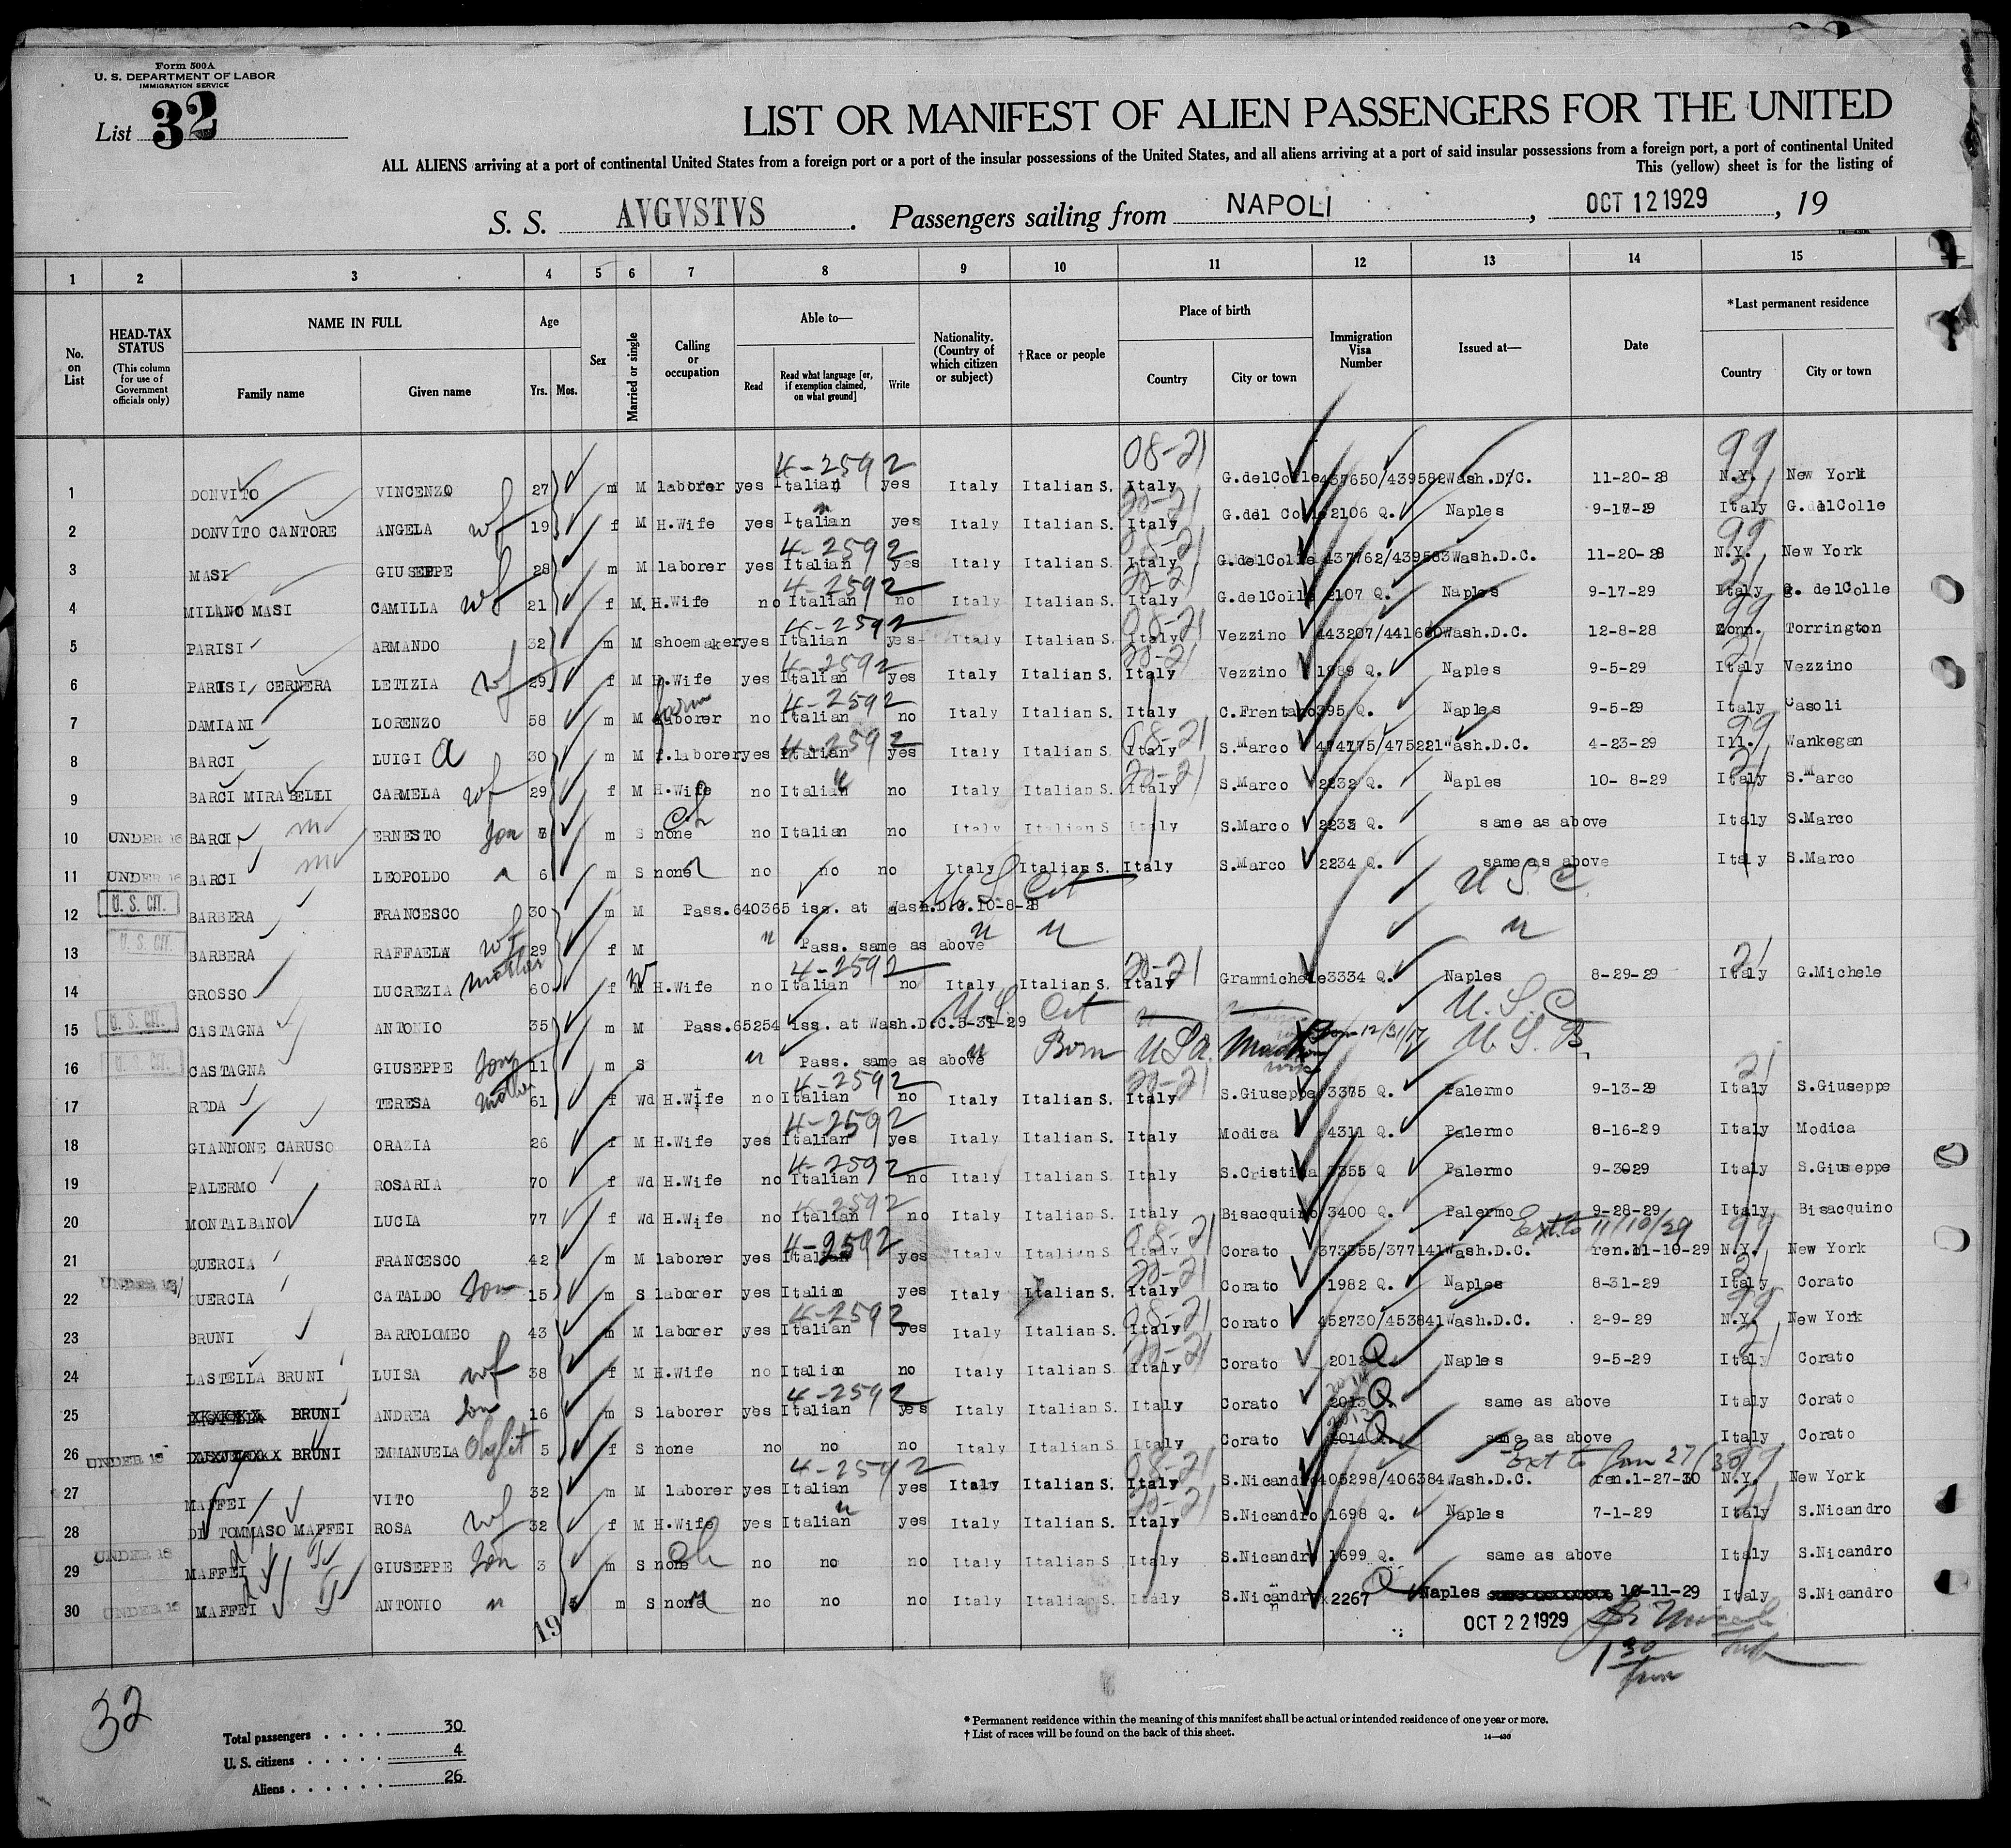 Form 500A
U. S. DEPARTMENT OF LABOR
IMMIGRATION SERVICE
List 32
LIST OR MANIFEST OF ALIEN PASSENGERS FOR THE UNITED
ALL ALIENS arriving at a port of continental United States from a foreign port or a port of the insular possessions of the United States, and all aliens arriving at a port of said insular possessions from a foreign port, a port of continental United
This (yellow) sheet is for the listing of
S. S. AVGVSTVS . Passengers sailing from NAPOLI , OCT 12 1929 , 19
1 2 3 4 5 6 7 8 9 10 11 12 13 14 15
No. on List
HEAD-TAX STATUS
(This column for use of Government officials only)
NAME IN FULL
Family name Given name
Age
Yrs. Mos.
Sex
Married or single
Calling or occupation
Able to—
Read
Read what language [or, if exemption claimed, on what ground]
Write
Nationality. (Country of which citizen or subject)
†Race or people
Place of birth
Country City or town
Immigration Visa Number
Issued at—
Date
*Last permanent residence
Country City or town
4-2592 08-21 99
1 DONVITO VINCENZO 27 m M laborer yes Italian yes Italy Italian S. Italy G.delColle 437650/439582 Wash.D.C. 11-20-28 N.Y. New York
20-21 21
2 DONVITO CANTORE ANGELA wf 19 f M H.Wife yes Italian yes Italy Italian S. Italy G.del Colle 2106 Q. Naples 9-17-29 Italy G.delColle
4-2592 08-21 99
3 MASI GIUSEPPE 28 m M laborer yes Italian yes Italy Italian S. Italy G.delColle 437762/439583 Wash.D.C. 11-20-28 N.Y. New York
4-2592 20-21 21
4 MILANO MASI CAMILLA wf 21 f M H.Wife no Italian no Italy Italian S. Italy G.delColle 2107 Q. Naples 9-17-29 Italy G. delColle
4-2592 08-21 99
5 PARISI ARMANDO 32 m M shoemaker yes Italian yes Italy Italian S. Italy Vezzino 443207/441680 Wash.D.C. 12-8-28 Conn. Torrington
4-2592 20-21 21
6 PARISI CERNERA LETIZIA wf 29 f M H.Wife yes Italian yes Italy Italian S. Italy Vezzino 1989 Q. Naples 9-5-29 Italy Vezzino
farm 4-2592
7 DAMIANI LORENZO 58 m M laborer no Italian no Italy Italian S. Italy C.Frentano 395 Q. Naples 9-5-29 Italy Casoli
4-2592 08-21 99
8 BARCI LUIGI a 30 m M f.laborer yes Italian yes Italy Italian S. Italy S.Marco 474775/475221 Wash.D.C. 4-23-29 Ill. Wankegan
20-21 21
9 BARCI MIRABELLI CARMELA wf 29 f M H.Wife no Italian no Italy Italian S. Italy S.Marco 2232 Q. Naples 10- 8-29 Italy S.Marco
10 UNDER 16 BARCI ERNESTO Son m S none Ch no Italian no Italy Italian S Italy S.Marco 2233 Q. same as above Italy S.Marco
11 UNDER 16 BARCI LEOPOLDO " 6 m S none " no no no Italy Italian S. Italy S.Marco 2234 Q. same as above Italy S.Marco
U. S. Cit U S C
12 U. S. CIT. BARBERA FRANCESCO 30 m M Pass.640365 iss. at Wash.D.C.10-8-28
13 U. S. CIT. BARBERA RAFFAELA wf 29 f M " Pass. same as above " " "
mother 4-2592 20-21 21
14 GROSSO LUCREZIA 60 f W H.Wife no Italian no Italy Italian S. Italy Grammichele 3334 Q. Naples 8-29-29 Italy G.Michele
U. S. Cit U. S. C
15 U. S. CIT. CASTAGNA ANTONIO 35 m M Pass.65254 iss. at Wash.D.C.5-31-29
16 U. S. CIT. CASTAGNA GIUSEPPE Son 11 m S " Pass. same as above " Born USA. Madison wis Born 12/31/17 U. S. B.
mother 4-2592 20-21 21
17 REDA TERESA 61 f Wd H.Wife no Italian no Italy Italian S. Italy S.Giuseppe 3375 Q. Palermo 9-13-29 Italy S.Giuseppe
4-2592
18 GIANNONE CARUSO ORAZIA 26 f M H.Wife yes Italian yes Italy Italian S. Italy Modica 4311 Q. Palermo 8-16-29 Italy Modica
4-2592
19 PALERMO ROSARIA 70 f Wd H.Wife no Italian no Italy Italian S. Italy S.Cristina 3355 Q Palermo 9-3029 Italy S.Giuseppe
4-2592
20 MONTALBANO LUCIA 77 f Wd H.Wife no Italian no Italy Italian S. Italy Bisacquino 3400 Q. Palermo 9-28-29 Italy Bisacquino
4-2592 08-21 Ext. to 11/10/29 99
21 QUERCIA FRANCESCO 42 m M laborer yes Italian yes Italy Italian S Italy Corato 373355/377141 Wash.D.C. ren.11-10-29 N.Y. New York
20-21 21
22 UNDER 16 QUERCIA CATALDO Son 15 m S laborer yes Italian yes Italy Italian S. Italy Corato 1982 Q. Naples 8-31-29 Italy Corato
4-2592 08-21 99
23 BRUNI BARTOLOMEO 43 m M laborer yes Italian yes Italy Italian S. Italy Corato 452730/453841 Wash.D.C. 2-9-29 N.Y. New York
20-21 21
24 LASTELLA BRUNI LUISA wf 38 f M H.Wife no Italian no Italy Italian S. Italy Corato 2012 Q. Naples 9-5-29 Italy Corato
4-2592 2014
25 BRUNI ANDREA Son 16 m S laborer yes Italian yes Italy Italian S. Italy Corato 2013 Q same as above Italy Corato
2013
26 UNDER 16 BRUNI EMMANUELA 5 f S none no no no Italy Italian S Italy Corato 2014 Q same as above Italy Corato
4-2592 08-21 Ext to Jan 27/30 99
27 MAFFEI VITO 32 m M laborer yes Italian yes Italy Italian S. Italy S.Nicandro 405298/406384 Wash.D.C. ren.1-27-30 N.Y. New York
20-21 21
28 DI TOMMASO MAFFEI ROSA wf 32 f M H.Wife yes Italian " yes Italy Italian S. Italy S.Nicandro 1698 Q. Naples 7-1-29 Italy S.Nicandro
29 UNDER 16 MAFFEI GIUSEPPE Son 3 m S none Ch no no no Italy Italian S Italy S.Nicandro 1699 Q. same as above Italy S.Nicandro
30 UNDER 16 MAFFEI ANTONIO " m S none " no no no Italy Italian S Italy S.Nicandro 2267 Q Naples 10-11-29 Italy S.Nicandro
19
OCT 22 1929
1 30
32
Total passengers . . . . 30
U. S. citizens . . . . . 4
Aliens . . . . . . 26
* Permanent residence within the meaning of this manifest shall be actual or intended residence of one year or more.
† List of races will be found on the back of this sheet.
14—430